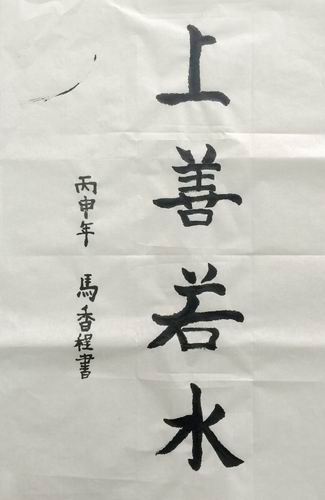 上善若水
丙申年 馬香程書